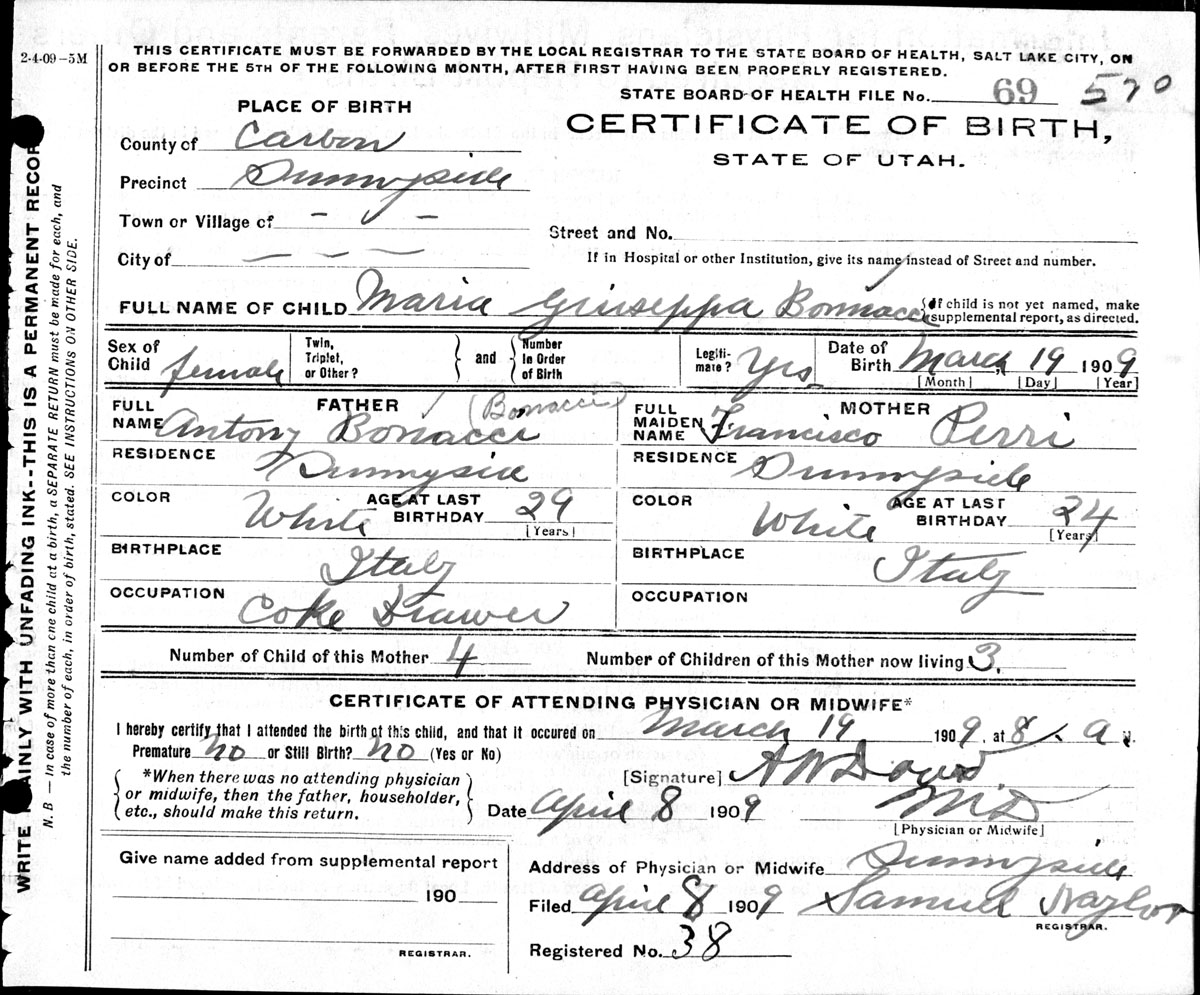 2-4-09-5M
THIS CERTIFICATE MUST BE FORWARDED BY THE LOCAL REGISTRAR TO THE STATE BOARD OF HEALTH, SALT LAKE CITY, ON
OR BEFORE THE 5TH OF THE FOLLOWING MONTH, AFTER FIRST HAVING BEEN PROPERLY REGISTERED.
STATE BOARD OF HEALTH FILE No. 69 570
PLACE OF BIRTH
CERTIFICATE OF BIRTH,
STATE OF UTAH.
County of Carbon
Precinct Sunnyside
Town or Village of - -
Street and No.
City of - - -
If in Hospital or other Institution, give its name instead of Street and number.
FULL NAME OF CHILD Maria Giuseppa Bonnacci { If child is not yet named, make
supplemental report, as directed.
Sex of Child female Twin, Triplet, or Other? } and { Number In Order of Birth Legiti-mate? Yes Date of Birth March 19 1909
[Month] [Day] [Year]
FATHER (Bonacci) MOTHER
FULL NAME Antony Bonacci FULL MAIDEN NAME Francisco Perri
RESIDENCE Sunnyside RESIDENCE Sunnyside
COLOR White AGE AT LAST BIRTHDAY 29 [Years] COLOR White AGE AT LAST BIRTHDAY 24 [Years]
BIRTHPLACE Italy BIRTHPLACE Italy
OCCUPATION Coke Drawer OCCUPATION
Number of Child of this Mother 4 Number of Children of this Mother now living 3.
CERTIFICATE OF ATTENDING PHYSICIAN OR MIDWIFE*
I hereby certify that I attended the birth of this child, and that it occured on March 19 1909, at 8 A M.
Premature no or Still Birth? no (Yes or No)
*When there was no attending physician
or midwife, then the father, householder,
etc., should make this return.
[Signature] A W Dowd
Date April 8 1909 M D
[Physician or Midwife]
Give name added from supplemental report
190
REGISTRAR.
Address of Physician or Midwife Sunnyside
Filed April 8 1909 Samuel Naylor
REGISTRAR.
Registered No. 38
WRITE PLAINLY WITH UNFADING INK--THIS IS A PERMANENT RECOR
N. B — In case of more than one child at a birth, a SEPARATE RETURN must be made for each, and
the number of each, in order of birth, stated. SEE INSTRUCTIONS ON OTHER SIDE.